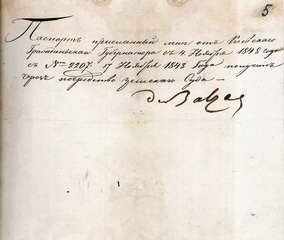 5
Паспортъ присланный мнѣ отъ Кіевскаго
Гражданскаго Губернатора съ 4. Ноября 1848 года
съ № 2207. 17 Ноября 1848 года получилъ
чрезъ посредство земскаго Суда —
de Balzac